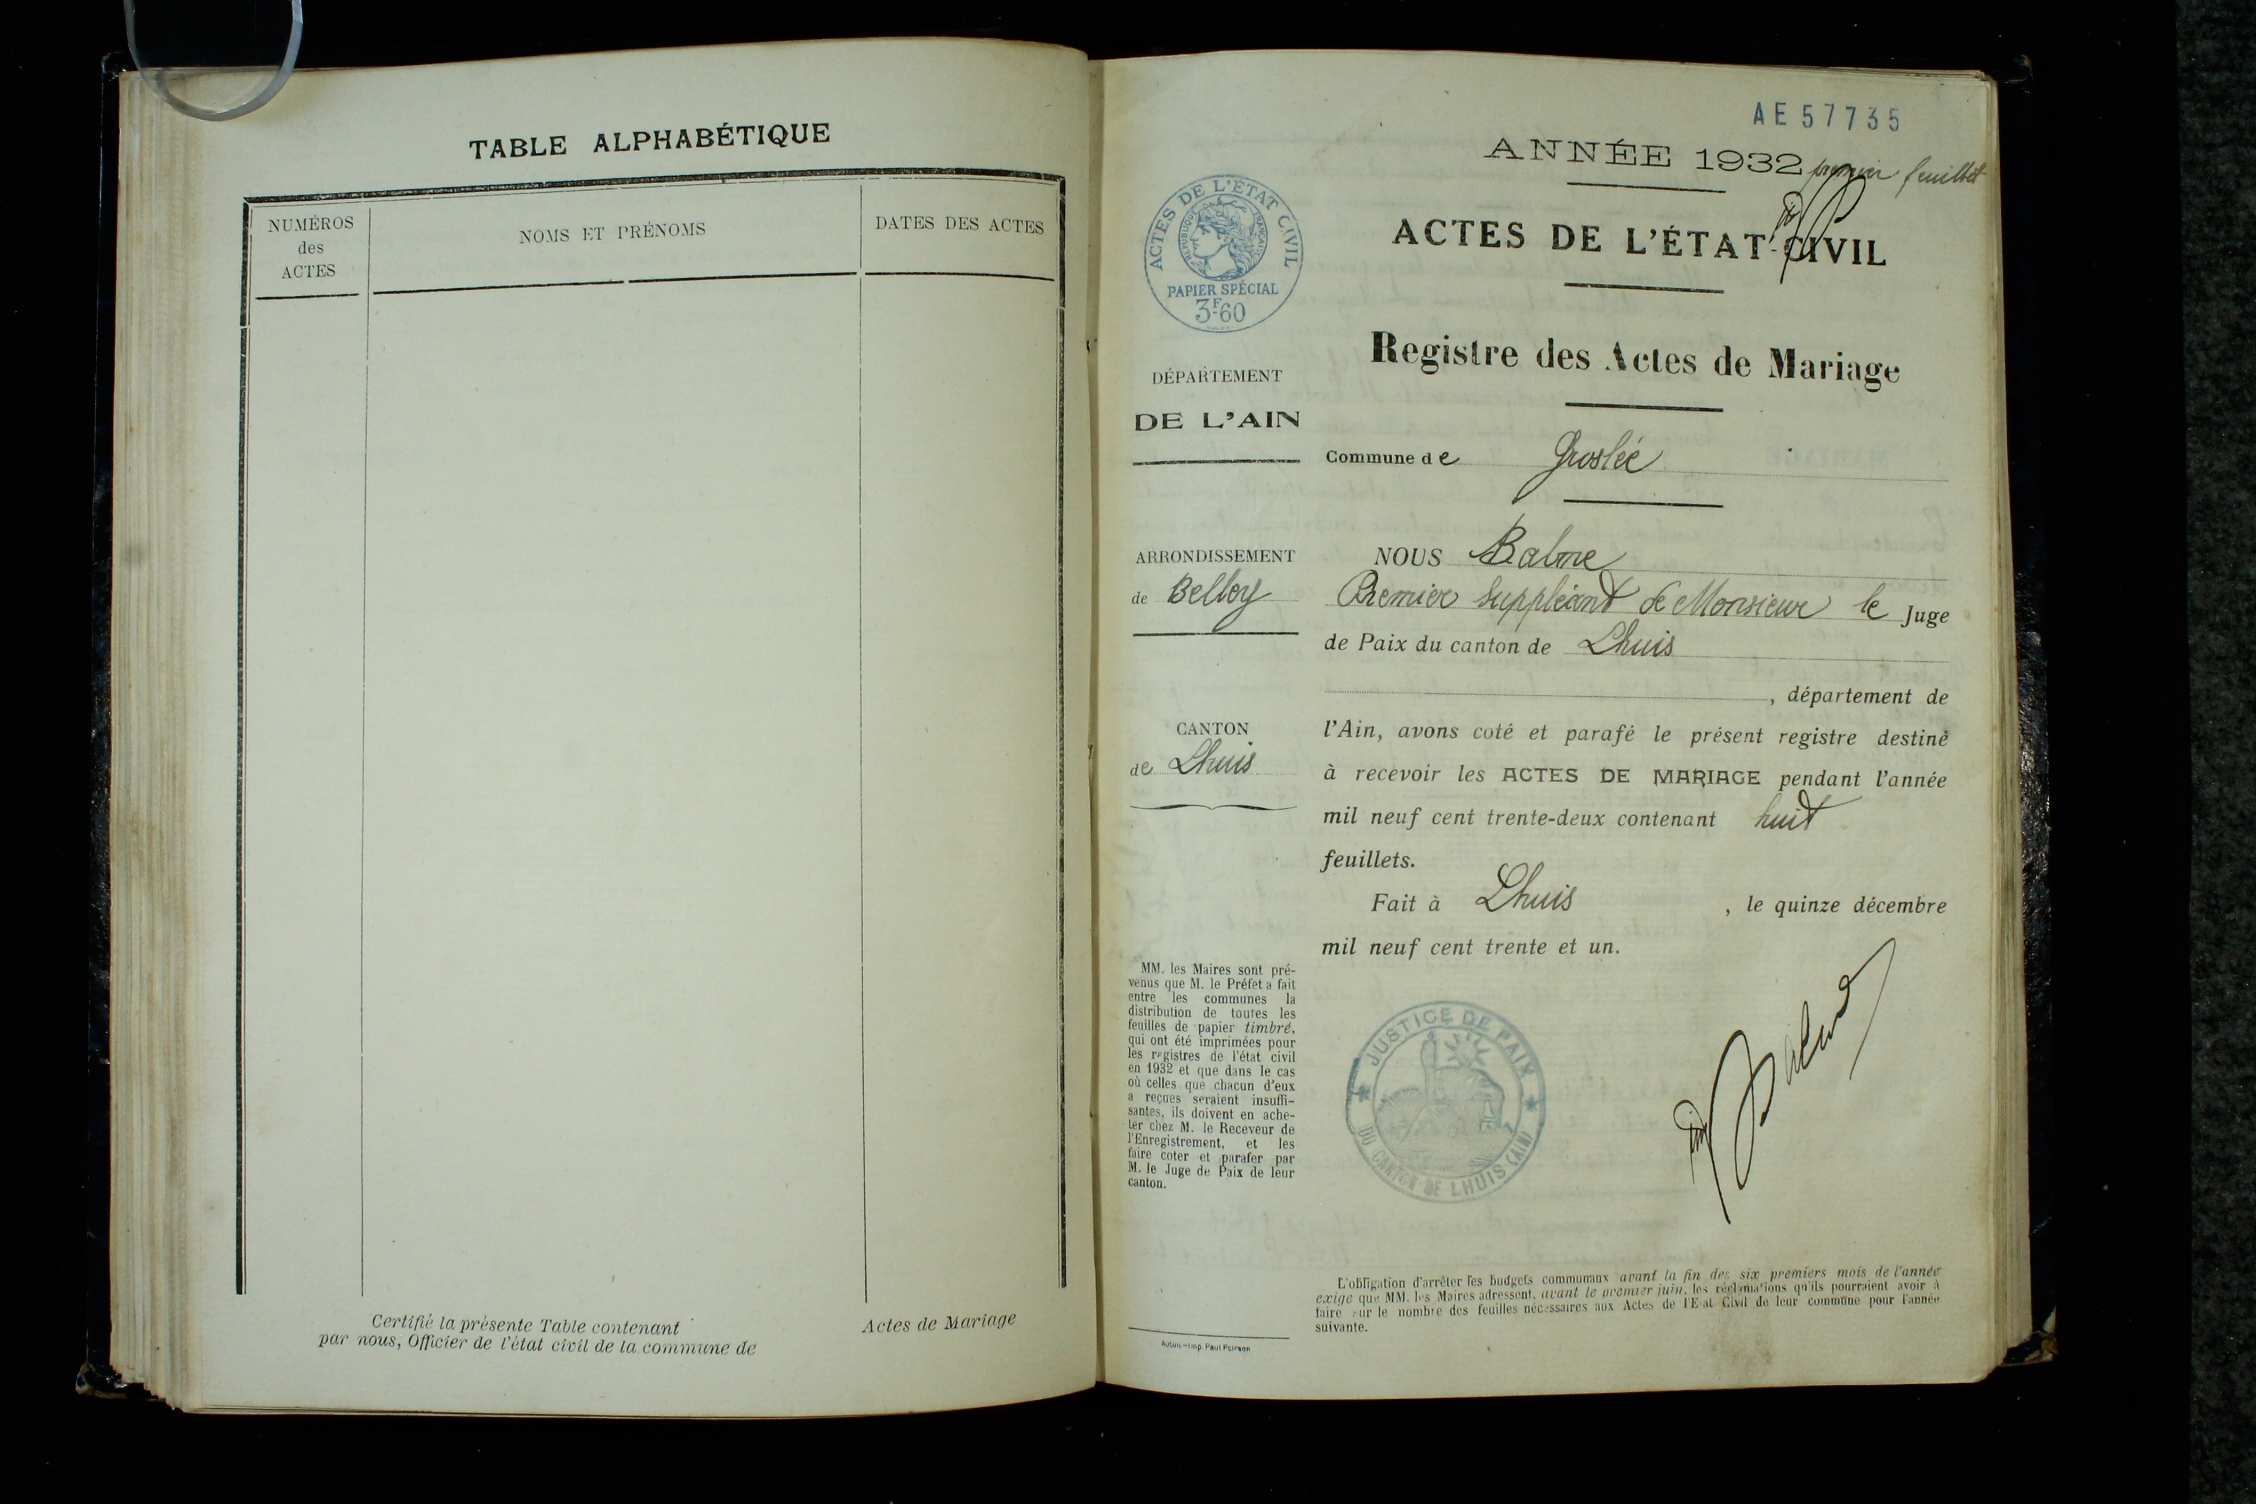 TABLE ALPHABÉTIQUE
NUMÉROS
des
ACTES
NOMS ET PRÉNOMS
DATES DES ACTES
Certifié la présente Table contenant
Actes de Mariage
par nous, Officier de l'état civil de la commune de
AE 57735
ANNÉE 1932
premier feuillet
ACTES DE L'ÉTAT CIVIL
RÉPUBLIQUE FRANÇAISE
PAPIER SPÉCIAL
3F60
ACTES DE L'ÉTAT-CIVIL
Registre des Actes de Mariage
DÉPARTEMENT
DE L'AIN
Commune de Groslée
ARRONDISSEMENT
de Belley
CANTON
de Lhuis
NOUS Balme
Premier Suppléant de Monsieur le Juge
de Paix du canton de Lhuis
, département de
l'Ain, avons coté et parafé le présent registre destiné
à recevoir les ACTES DE MARIAGE pendant l'année
mil neuf cent trente-deux contenant huit
feuillets.
Fait à Lhuis , le quinze décembre
mil neuf cent trente et un.
MM. les Maires sont pré-
venus que M. le Préfet a fait
entre les communes la
distribution de toutes les
feuilles de papier timbré,
qui ont été imprimées pour
les registres de l'état civil
en 1932 et que dans le cas
où celles que chacun d'eux
a reçues seraient insuffi-
santes, ils doivent en ache-
ter chez M. le Receveur de
l'Enregistrement, et les
faire coter et parafer par
M. le Juge de Paix de leur
canton.
JUSTICE DE PAIX
DU CANTON DE LHUIS (AIN)
Balme
L'obligation d'arrêter les budgets communaux avant la fin des six premiers mois de l'année
exige que MM. les Maires adressent, avant le premier juin, les réclamations qu'ils pourraient avoir à
faire sur le nombre des feuilles nécessaires aux Actes de l'Etat Civil de leur commune pour l'année
suivante.